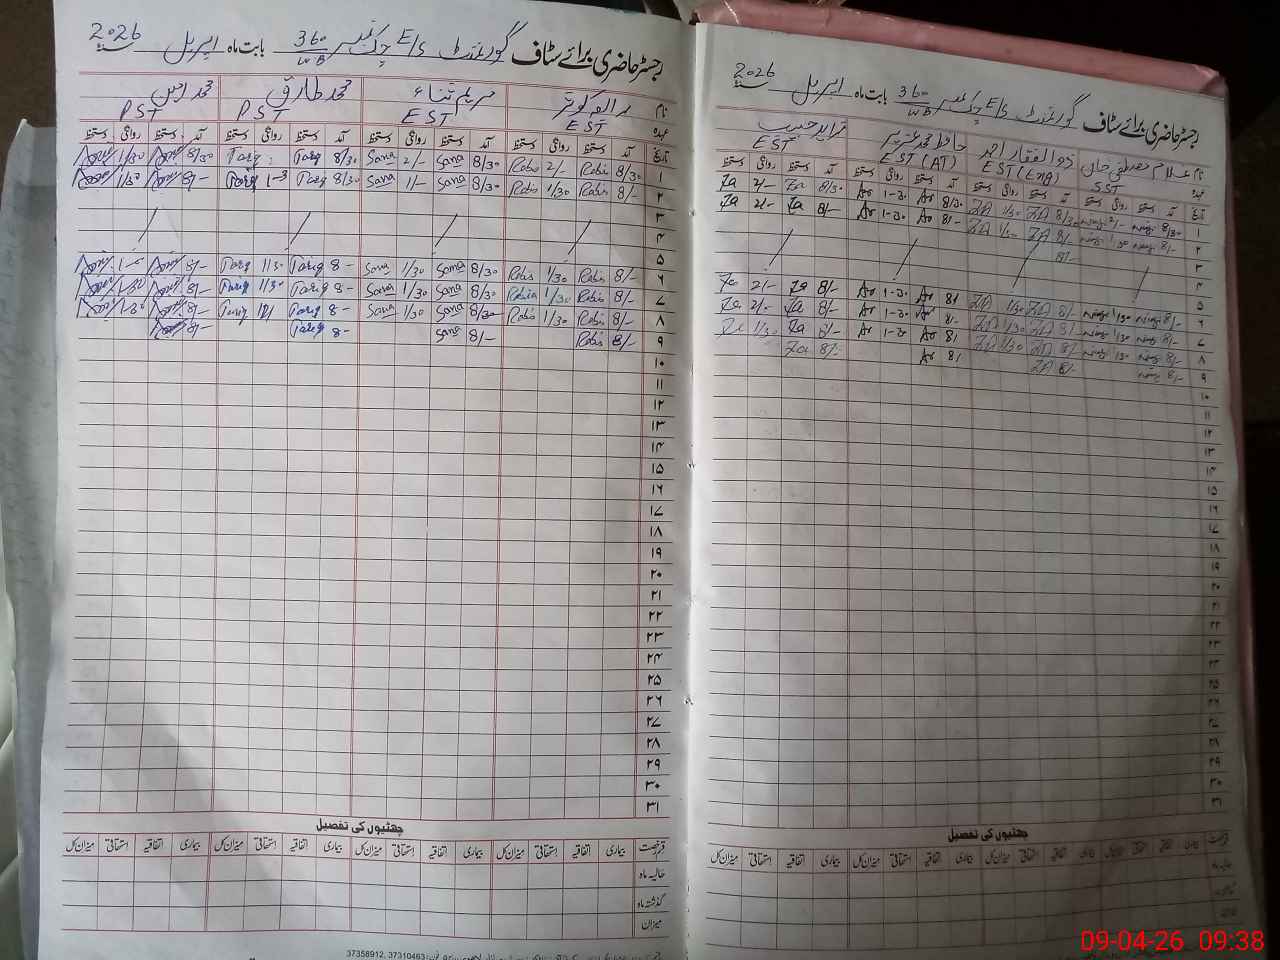 رجسٹر حاضری برائے سٹاف گورنمنٹ E/S چک نمبر 360 WB بابت ماہ اپریل سنہ 2026
نام غلام مصطفیٰ خان ذوالفقار احمد حافظ محمد
عہدہ SST EST (Eng) EST (AT) EST
تاریخ آمد دستخط روانگی دستخط آمد دستخط روانگی دستخط آمد دستخط روانگی دستخط آمد دستخط روانگی دستخط
۱ 8/30 2/- ZA 8/30 ZA 1/30 Ar 8/30 Ar 1-30 Za 8/30 Za 2/-
۲ 8/- 1/30 ZA 8/- ZA Ar 8/- Ar 1-30 Za 8/- Za 2/-
۳
۴
۵
۶ 8/- 1/30 ZA 8/- ZA 1/30 Ar 8/ Ar 1-30 Za 8/- Za 2/-
۷ 8/- 1/30 ZA 8/- ZA 1/30 Ar 8/- Ar 1-30 Za 8/- Za 2/-
۸ 8/- 1/30 ZA 8/- ZA 1/30 Ar 8/ Ar 1-30 Za 8/- Za 1/30
۹ 8/- ZA 8/- Ar 8/ Za 8/-
۱۰
۱۱
۱۲
۱۳
۱۴
۱۵
۱۶
۱۷
۱۸
۱۹
۲۰
۲۱
۲۲
۲۳
۲۴
۲۵
۲۶
۲۷
۲۸
۲۹
۳۰
۳۱
چھٹیوں کی تفصیل
قسم رخصت بیماری اتفاقیہ استحقاقی میزان کل بیماری اتفاقیہ استحقاقی میزان کل بیماری اتفاقیہ استحقاقی میزان کل بیماری اتفاقیہ استحقاقی میزان کل
حالیہ ماہ
گذشتہ ماہ
میزان
رجسٹر حاضری برائے سٹاف گورنمنٹ E/S چک نمبر 360 WB بابت ماہ اپریل سنہ 2026
نام رابعہ کوثر مریم ثناء محمد طارق محمد
عہدہ EST EST PST PST
تاریخ آمد دستخط روانگی دستخط آمد دستخط روانگی دستخط آمد دستخط روانگی دستخط آمد دستخط روانگی دستخط
۱ 8/30 Rabia 2/- Rabia 8/30 Sana 2/- Sana 8/30 Tariq Tariq 8/30 1/30
۲ 8/- Rabia 1/30 Rabia 8/30 Sana 1/- Sana 8/30 Tariq 1-3 Tariq 8/- 1/30
۳
۴
۵
۶ 8/- Rabia 1/30 Rabia 8/30 Sana 1/30 Sana 8- Tariq 1/30 Tariq 8/-
۷ 8/- Rabia 1/30 Rabia 8/30 Sana 1/30 Sana 8- Tariq 1/30 Tariq 8/- 1/30
۸ 8/- Rabia 1/30 Rabia 8/30 Sana 1/30 Sana 8- Tariq Tariq 8/- 1/30
۹ 8/- Rabia 8/- Sana 8- Tariq 8/-
۱۰
۱۱
۱۲
۱۳
۱۴
۱۵
۱۶
۱۷
۱۸
۱۹
۲۰
۲۱
۲۲
۲۳
۲۴
۲۵
۲۶
۲۷
۲۸
۲۹
۳۰
۳۱
چھٹیوں کی تفصیل
قسم رخصت بیماری اتفاقیہ استحقاقی میزان کل بیماری اتفاقیہ استحقاقی میزان کل بیماری اتفاقیہ استحقاقی میزان کل بیماری اتفاقیہ استحقاقی میزان کل
حالیہ ماہ
گذشتہ ماہ
میزان
37358912, 37310463
09-04-26 09:38